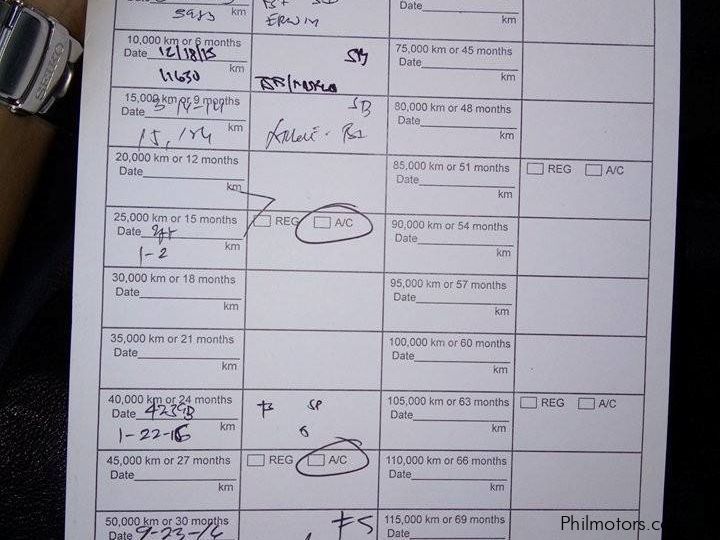 km
Date
km
10,000 km or 6 months
Date 12/18/15
11630 km
SB
75,000 km or 45 months
Date
km
15,000 km or 9 months
Date
15,124 km
SB
80,000 km or 48 months
Date
km
20,000 km or 12 months
Date
km
85,000 km or 51 months
Date
km
REG A/C
25,000 km or 15 months
Date
1-2 km
REG A/C
90,000 km or 54 months
Date
km
30,000 km or 18 months
Date
km
95,000 km or 57 months
Date
km
35,000 km or 21 months
Date
km
100,000 km or 60 months
Date
km
40,000 km or 24 months
Date
1-22-16 km
105,000 km or 63 months
Date
km
REG A/C
45,000 km or 27 months
Date
km
REG A/C
110,000 km or 66 months
Date
km
50,000 km or 30 months
Date
FS
115,000 km or 69 months
Date
Philmotors.c